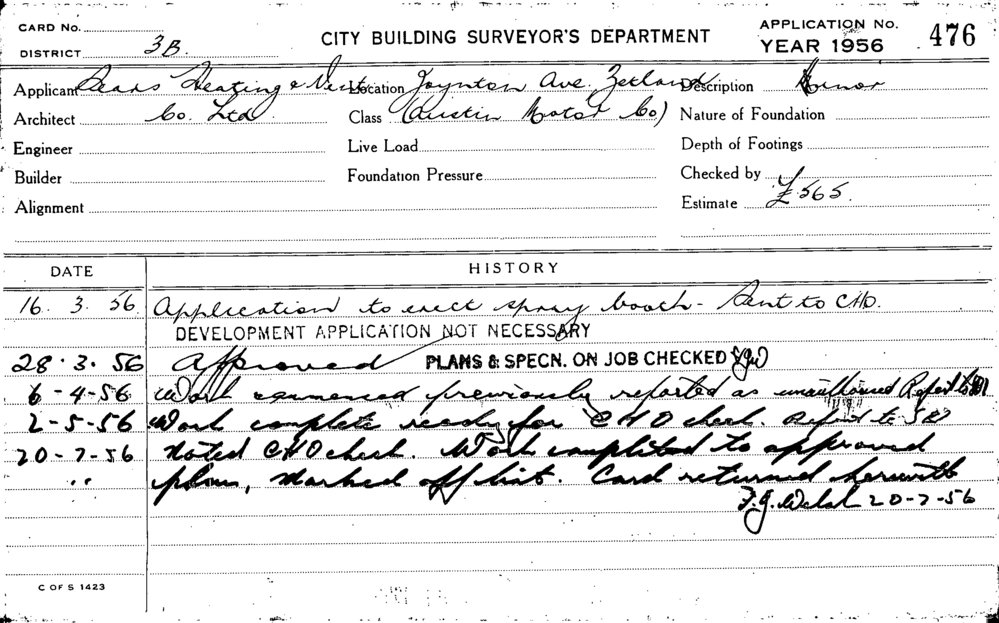 CARD No.
DISTRICT 3B.
CITY BUILDING SURVEYOR'S DEPARTMENT
APPLICATION No. 476
YEAR 1956
Applicant Sears Heating & Vent Location Joynton Ave. Zetland Description Minor
Architect Co. Ltd Class (Austin Motor Co) Nature of Foundation
Engineer Live Load Depth of Footings
Builder Foundation Pressure Checked by
Alignment Estimate £565.
DATE HISTORY
16. 3. 56. Application to erect spray booth - Sent to CHO.
DEVELOPMENT APPLICATION NOT NECESSARY
28. 3. 56 Approved PLANS & SPECN. ON JOB CHECKED
6-4-56. Work commenced previously reported as Report to
2-5-56 Work complete ready for CHO check. Report to
20-7-56 Noted CHO check. Work completed to approved
" plans, Marked off list. Card returned herewith
F.J. Welsh 20-7-56
C OF S 1423